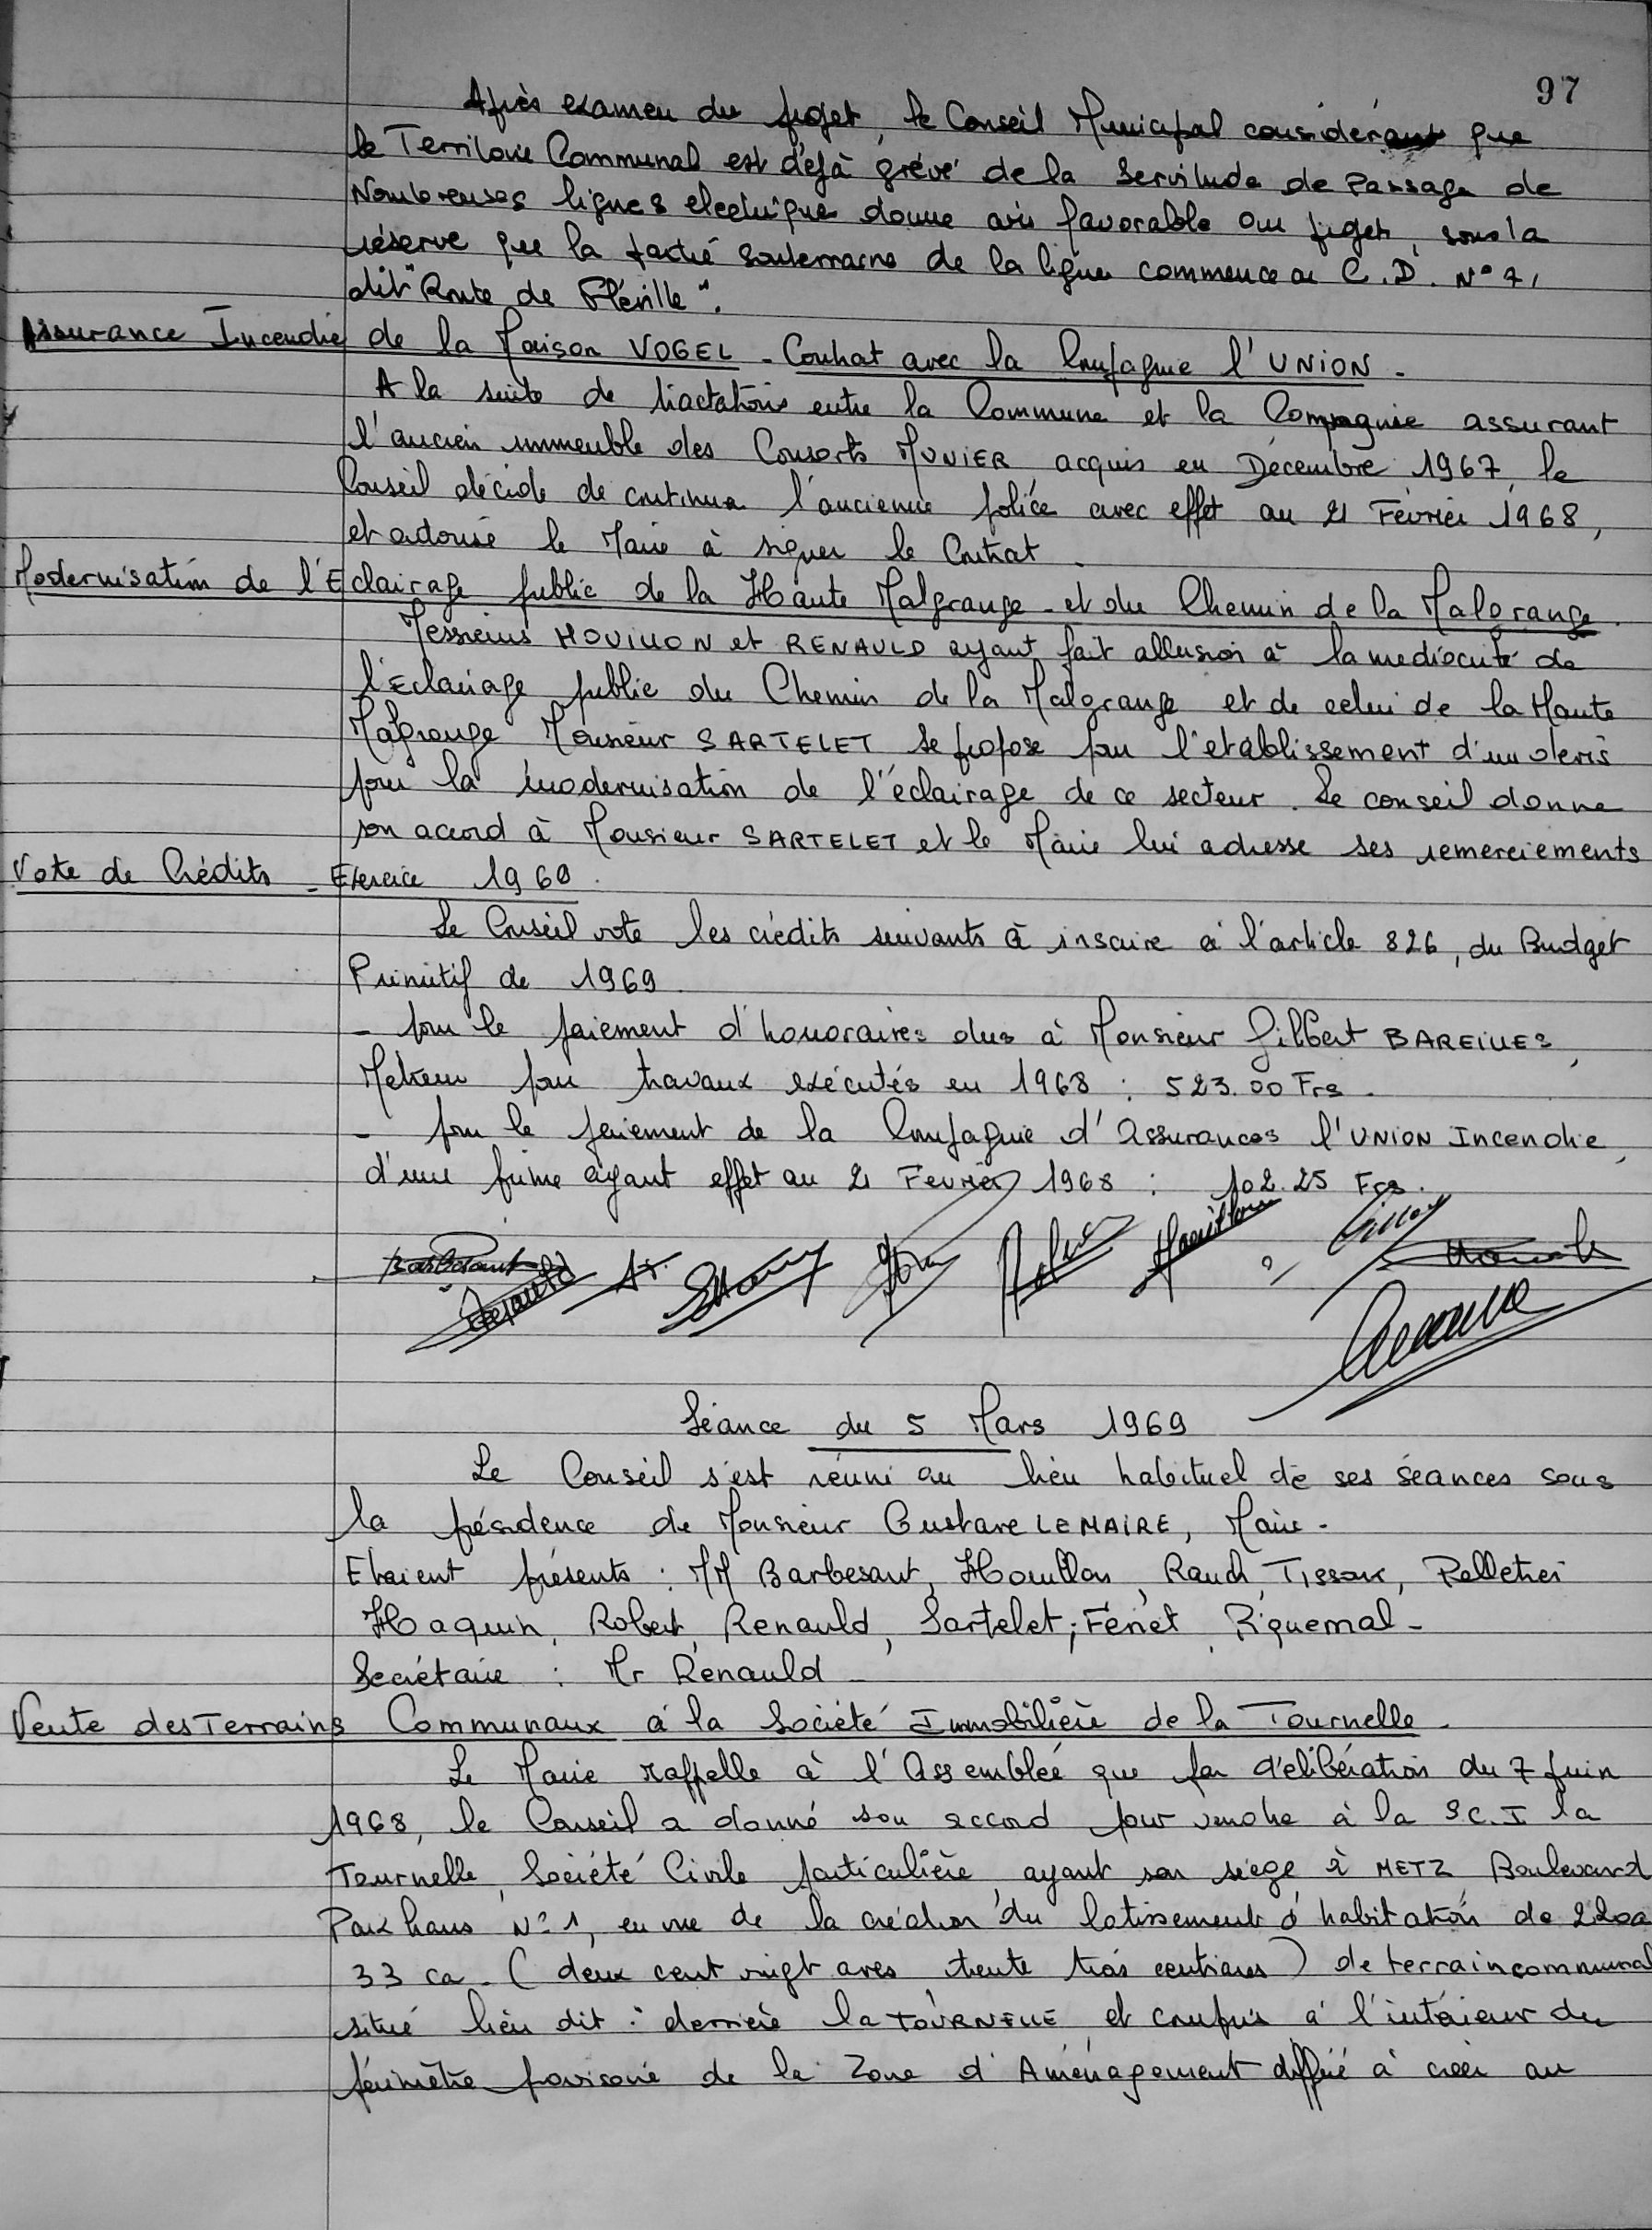 97
Après examen du projet, le Conseil Municipal considérant que
le Territoire Communal est déjà grévé de la Servitude de Passage de
Nombreuses lignes electriques donne avis favorable au projet, sous la
réserve que la partie souterraine de la ligne commence au C.D. N° 71
dit "Route de Fléville".
Assurance Incendie de la Maison VOGEL - Contrat avec la Compagnie l'UNION -
A la suite de tractations entre la Commune et la Compagnie assurant
l'ancien immeuble des Consorts MUNIER acquis en Décembre 1967, le
Conseil décide de continuer l'ancienne police avec effet au 21 Février 1968,
et autorise le Maire à signer le Contrat.
Modernisation de l'Eclairage public de la Haute Malgrange - et du Chemin de la Malgrange.
Messieurs HOUILLON et RENAULD ayant fait allusion à la mediocrité de
l'Eclairage public du Chemin de la Malgrange et de celui de la Haute
Malgrange Monsieur SARTELET se propose pour l'etablissement d'un devis
pour la modernisation de l'éclairage de ce secteur. Le conseil donne
son accord à Monsieur SARTELET et le Maire lui adresse ses remerciements
Vote de Crédits - Exercice 1960.
Le Conseil vote les crédits suivants à inscrire à l'article 826, du Budget
Primitif de 1969.
- pour le paiement d'honoraires dus à Monsieur Gilbert BAREILLES,
Metreur pour travaux exécutés en 1968 : 523.00 Frs.
- pour le paiement de la Compagnie d'Assurances l'UNION Incendie,
d'une prime ayant effet au 21 Février 1968 : 102.25 Frs.
Barbesant
Houillon
Séance du 5 Mars 1969
Le Conseil s'est réuni au lieu habituel de ses séances sous
la présidence de Monsieur Gustave LEMAIRE, Maire.
Etaient présents : MM Barbesant, Houillon, Rauch, Tissoux, Pelletier
Haquin, Robert, Renauld, Sartelet; Fenet, Riquemal -
Secrétaire : Mr Renauld -
Vente des Terrains Communaux à la Société Immobilière de la Tournelle -
Le Maire rappelle à l'Assemblée que par délibération du 7 Juin
1968, le Conseil a donné son accord pour vendre à la S.C.I la
Tournelle, Société Civile particulière, ayant son siège à METZ Boulevard
N° 1, en vue de la création du lotissement d'habitation de 220a
33 ca - (deux cent vingt ares trente trois centiares) de terrain communal
situé lieu dit : derrière la TOURNELLE et compris à l'intérieur du
périmètre provisoire de la Zone d'Aménagement différé à créer au